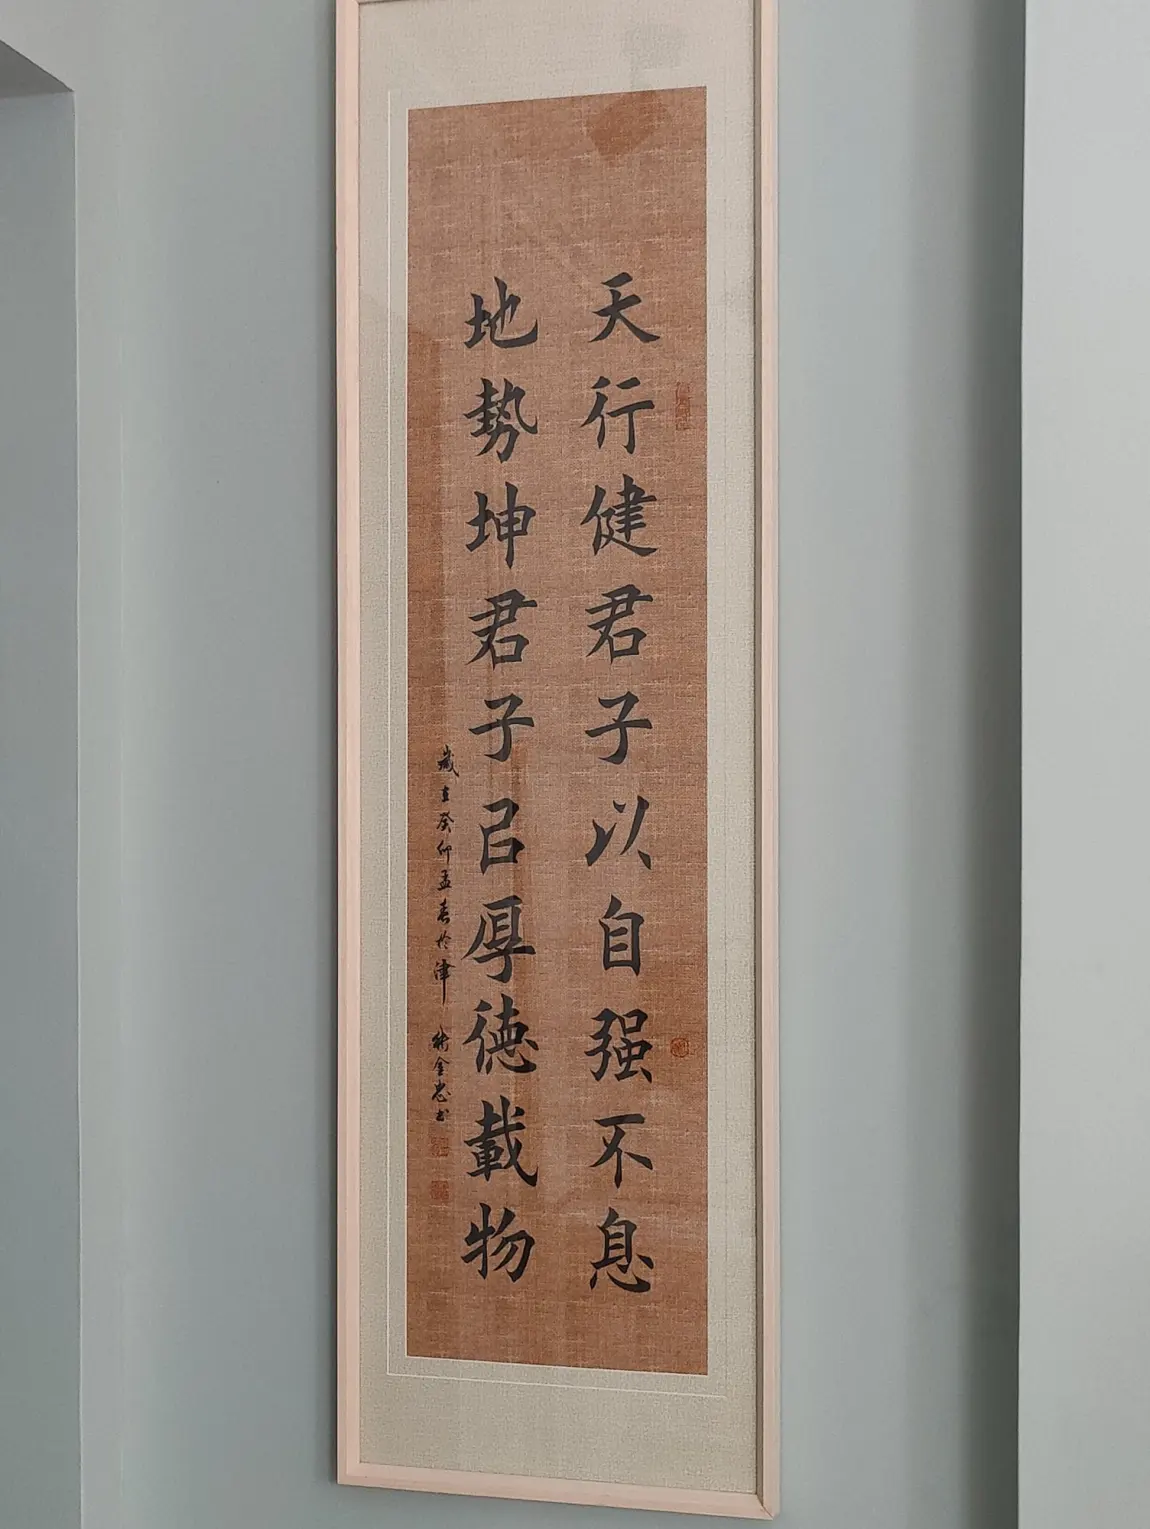 天行健君子以自强不息
地勢坤君子㠯厚德載物
歲在癸卯孟春於津
金忠书